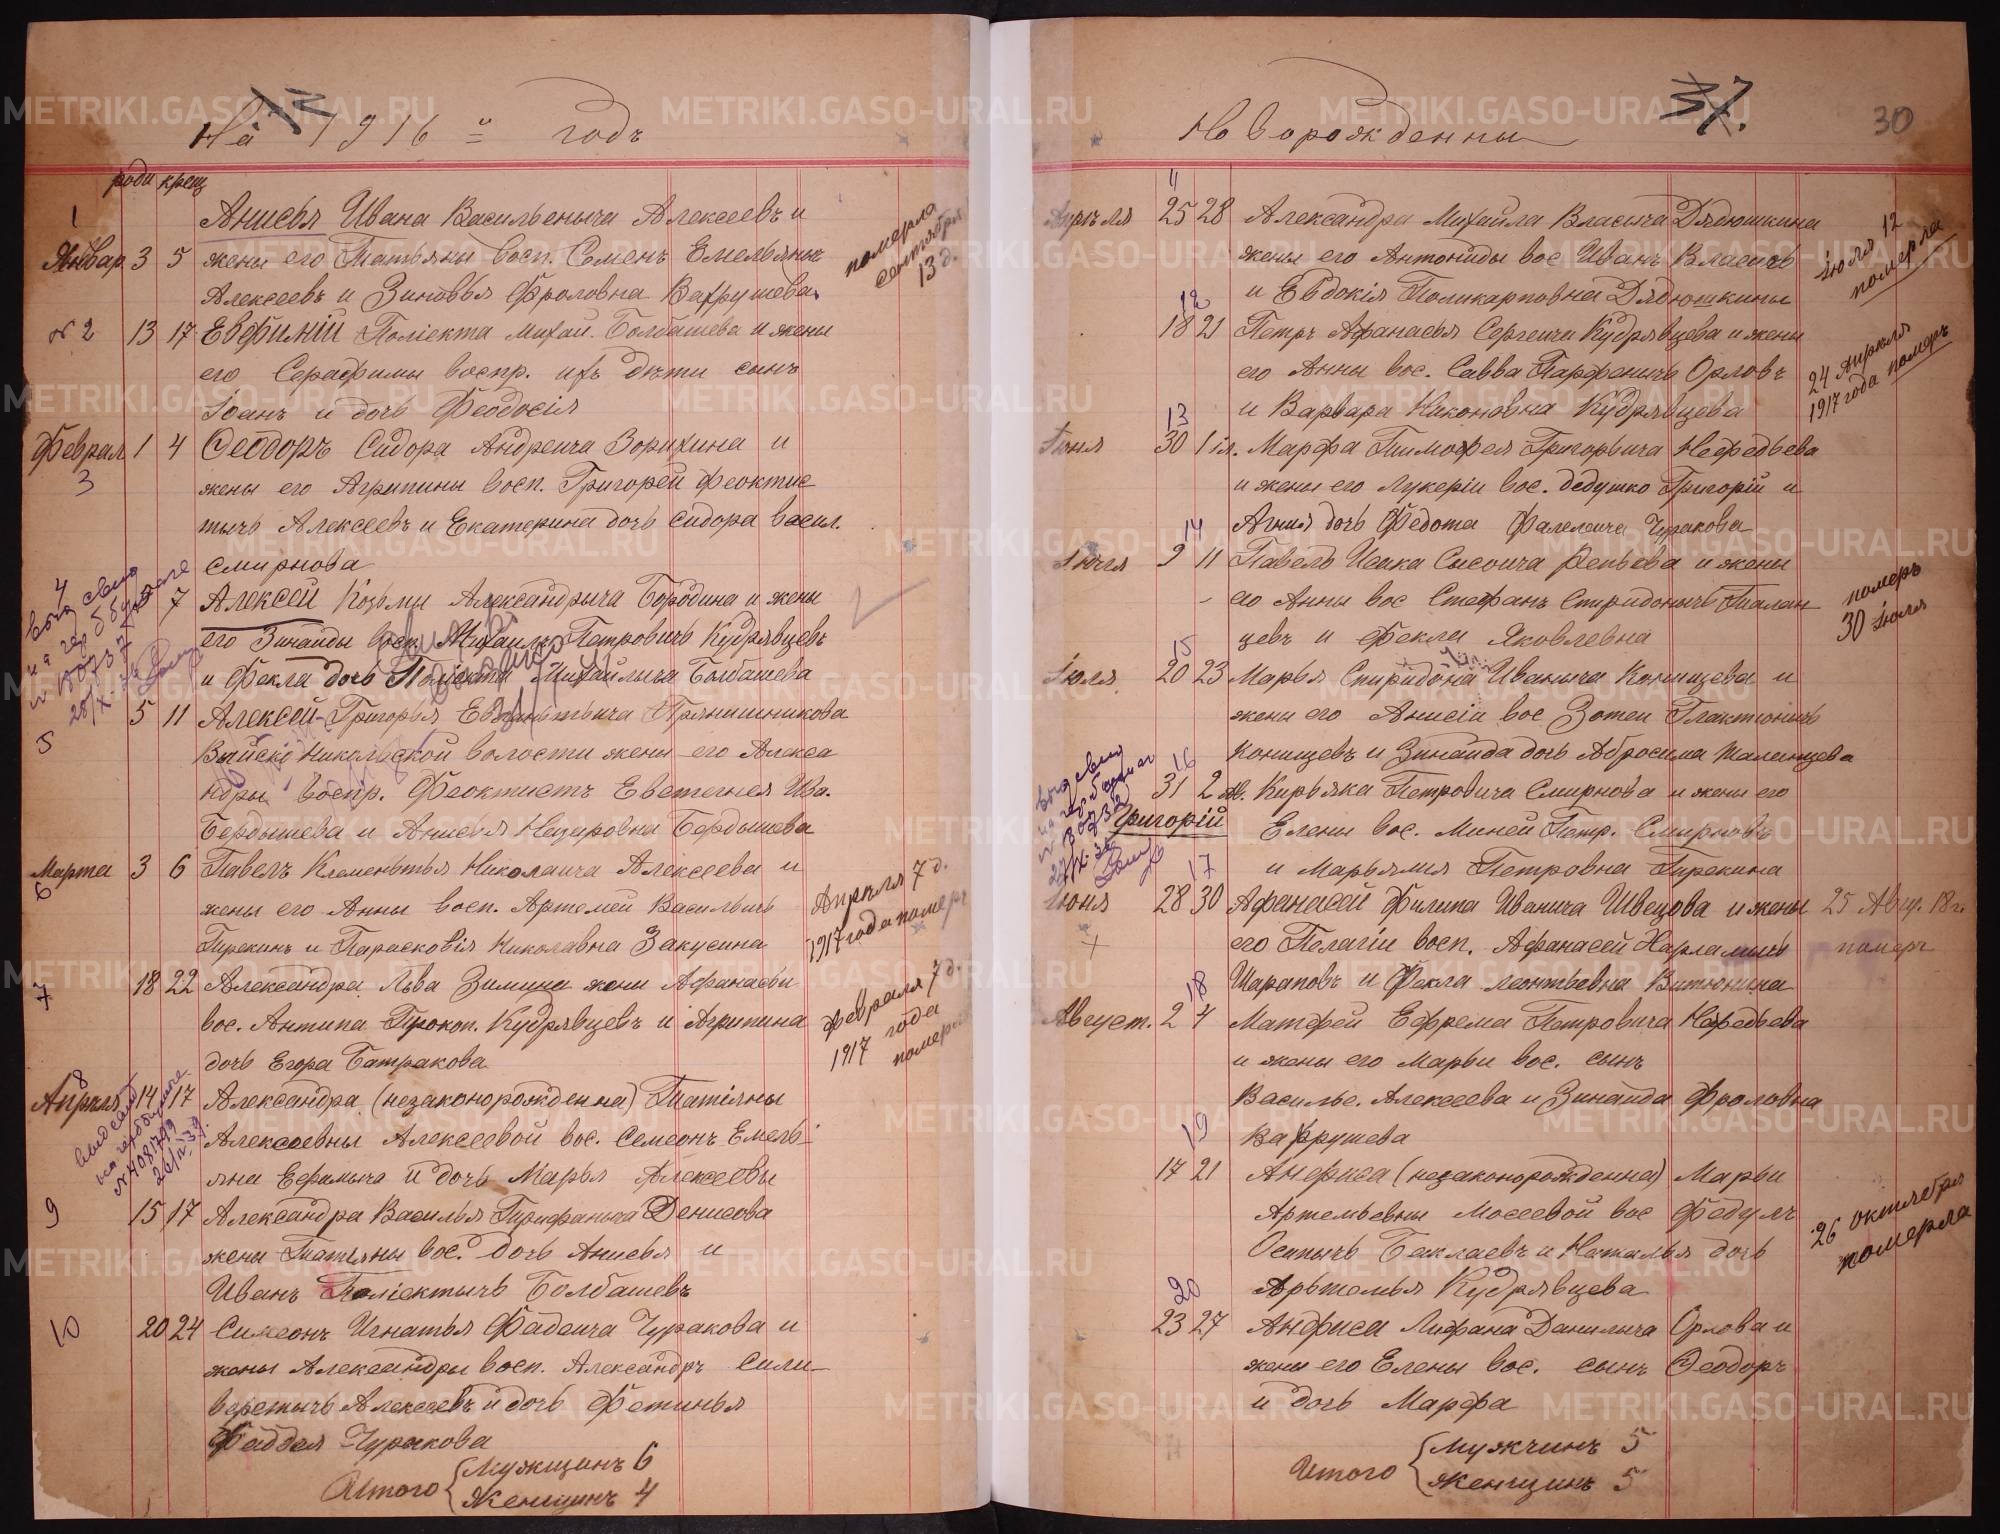 На 1916 и годъ
роди крещ
1
Анисья Ивана Васильеныча Алексеевъ и
Январ 3 5 жены его Татьяны восп. Семенъ Емельяны
Алексеевъ и Зиновья Фроловна Вахрушева
померла
сентября
13 д.
№ 2 13 17 Евфимій Поліекта Михай. Болбашева и жены
его Серафимы воспр. ихъ дѣти сынъ
Іоанъ и дочь Феодосія
Феврал 1 4 Феодоръ Сидора Андреича Зорихина и
3
жены его Агрипины восп. Григорей Феоктис
тычъ Алексеевъ и Екатерина дочь Сидора васил.
Смирнова
4
7 Алексей Козьмы Александрыча Бородина и жены
его Зинаиды восп. Михаилъ Петровичъ Кудрявцевъ
и Фекла дочь Поліекта Михайлыча Болбашева
5
5 11 Алексей Григорья Прянишникова
Никольской волости жены его Алекса
ндры воспр. Феоктистъ Евстегнея Ива.
Бердышева и Анисья Назаровна Бердышева
Марта 3 6 Павелъ Клементья Николаича Алексеева и
6
жены его Анны восп. Артемей Васильичъ
Гирекинъ и Парасковія Николавна Закусина
Апреля 7 д.
1917 года помер
7
18 22 Александра Льва Зимина жены Афанасеи
вос. Антипа Прокоп. Кудрявцевъ и Агрипина
дочь Егора Батракова
Февраля 7 д.
1917 года
померла
8
Апреля 14 17 Александра (незаконорожденна) Татіяны
Алексеевны Алексеевой вос. Семеонъ Емель-
яна Ефимыча и дочь Марья Алексеевы
9 15 17 Александра Василья Трифаныча Денисова
жены Татіяны вос. дочь Анисья и
Иванъ Поліектычъ Болбашевъ
10 20 24 Симеонъ Игнатья Фадеича Чуракова и
жены Александры восп. Александръ Сили-
верстычъ Алексеевъ и дочь Фетинья
Фаддея Чуракова
Итого Мужщинъ 6
Женщинъ 4
Новорожденны
37.
30
11
Апреля 25 28 Александра Михайла Власыча Дядюшкина
жены его Антониды вос Иванъ Власычъ
и Евдокія Поликарповна Дядюшкины
Іюля 12
померла
12
18 21 Петръ Афанасья Сергеича Кудрявцева и жены
его Анны вос. Савва Парфеничъ Орловъ
и Варвара Никоновна Кудрявцева
24 Апреля
1917 года померъ
13
Іюня 30 1 іл. Марфа Тимофея Григорьича Нефедьева
и жены его Лукеріи вос. дедушко Григорій и
Агнія дочь Федота Фалелеича Чуракова
14
Іюля 9 11 Павелъ Исака Сысоича Репьева и жены
его Анны вос Стефанъ Спиридонычъ Талан
цевъ и Фекла Яковлевна
померъ
30 Іюля
15
Іюля 20 23 Марья Спиридона Иваныча Конищева и
жены его Анисіи вос Зотеи Глактіонычъ
Конищевъ и Зинаида дочь Абросима Таланцева
16
31 2 ав. Кирьяка Петровича Смирнова и жены его
Григорій Елены вос. Миней Петр. Смирновъ
и Марьямія Петровна Гирекина
17
Іюня 28 30 Афанасей Филипа Иванича Швецова и жены
его Пелагіи восп. Афанасей Харламычъ
Шараповъ и Фекла Леонтьевна Витюнина
25 Авгу. 18 г.
померъ
18
Август. 2 4 Матфей Ефрема Петровича Нефедьева
и жены его Марьи вос. сынъ
Василье. Алексеева и Зинаида Фроловна
Вахрушева
19
17 21 Анфиса (незаконорожденна) Марьи
Артемьевны Мосеевой вос Федулъ
Осипычъ Баклаевъ и Наталья дочь
Артемья Кудрявцева
26 октлебря
померла
20
23 27 Анфиса Лифана Данилыча Орлова и
жены его Елены вос. сынъ Феодоръ
и дочь Марфа
Итого Мужчинъ 5
Женщинъ 5
METRIKI.GASO-URAL.RU